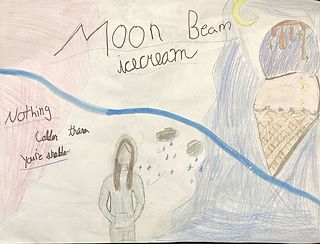 Moon Beam
icecream
Nothing
Colder than
you're